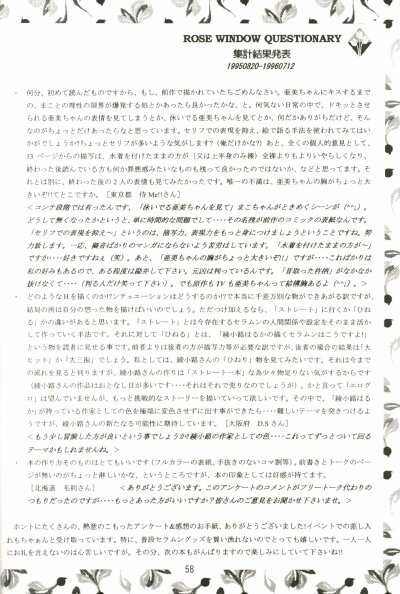 ROSE WINDOW QUESTIONARY
集計結果発表
19950820-19960712
・ 何分、初めて読んだものですから、もし、前作で描かれていたらごめんなさい。亜美ちゃんにキスするまで
の、まことの理性の限界が爆発する処とかあったら良かったかな、と。何気ない日常の中で、ドキッとさせ
られる亜美ちゃんの表情を見てしまうとか、泳いでる亜美ちゃんを見てとか、何だかありがちだけど、そん
なのがちょっとだけあったらなと思っています。セリフでの表現を抑え、絵で語る手法を使われてみてはい
かがでしょうか?ちょっとセリフが多いような気がします?(俺だけかな?)あと、全くの個人的意見として、
13 ページからの描写は、水着を付けたままの方が(又は上半身のみ裸)全裸よりもよりいやらしくなり、
終わった後読んでいる方も何か罪悪感みたいなものも残って良かったのではないか、などと思ってます。そ
れとは別に、終わった後の2人の表情も見てみたかったです。唯一の不満は、亜美ちゃんの胸がちょっと大
きいぞ!!てとこですか。［東京都　侍 Me!!さん］
＜コンテ段階では有ったんです、「泳いでる亜美ちゃんを見て」まこちゃんがときめくシーンが(^^;)。
どうして無くなったかというと、単に時間的な問題でして‥‥その名残が前作のコミックの表紙なんです。
「セリフでの表現を抑え〜」というのは、描写力、表現力をもっと身につけましょうということですね。努
力致します。一応、擬音ばかりのマンガにならないよう苦労はしています。「水着を付けたままの方が〜」
ですか‥‥好きですねぇ(笑)。あと、「亜美ちゃんの胸がちょっと大きいぞ!」ですが‥‥こればかりは
私の好みもあるので、ある程度は勘弁して下さい。元凶は判っているんです。「昔取った杵柄」がなかなか
抜けなくて‥‥(判る人だけ笑って下さい)。でも原作もTVも亜美ちゃんって結構胸あるよ(^^;)。＞
・ どのようなHを描くのか!?シチュエーションはどうするのか!?で本当に千差万別な物ができあがる訳ですが、
結局の所は自分の想った物を描けばいいのでしょう。ただつけ加えるなら、「ストレート」に行くか「ひね
る」かの違いがあると思います。「ストレート」とは今存在するセラムンの人間関係や設定をそのまま活か
して作っていく手法です。それに対して「ひねる」とは、「綾小路はるかの描くセラムンはこうですよ!」
という物を読者に見せる事です。前者よりは後者の方が描写力等が必要な訳ですが、後者の場合の結果は「大
ヒット」か「大三振」でしょう。私としては、綾小路さんの「ひねり」物を見てみたいです。それは今まで
の流れを見ると判りますが、綾小路さんの作りは「ストレート一本」な為少々物足りない気がするからです
(綾小路さんの作品はおとなし目が多いです‥‥それはそれで売りなのでしょうが)。かと言って「エログ
ロ」は望んでいませんが、もっと挑戦的なストーリーを描いていって欲しいです。その中で、「綾小路はる
か」が持っている作家としての色を極端に変色させずに出す事ができたら‥‥難しいテーマを突きつけるよ
うですが、綾小路さんの新たなる可能性に期待しています。［大阪府　D.Sさん］
＜もう少し冒険した方が良いという事でしょうか?綾小路の作家としての色‥‥これってずっとついて回る
テーマかもしれませんね。＞
・ 本の作り方そのものはとてもいいです(フルカラーの表紙、手抜きのないコマ割等)。前書きとトークのペー
ジが無いのがちょっと淋しいかな、というところですが、本の印象としては好感が持てます。
［北海道　毛利さん］　＜ありがとうございます。このアンケートのコメントがフリートーク代わりの
つもりだったのですが‥‥もっとあった方がいいですか?皆さんのご意見をお聞かせ下さいませ。＞
ホントにたくさんの、熱意のこもったアンケート&感想のお手紙、ありがとうございました!イベントでの差し入
れもちゃぁんと受け取っています。特に、普段セラムングッズを買い漁れないのでとっても嬉しいです。一人一人
にお礼を言えないのは心苦しいですが、その分、次の本もがんばりますので楽しみにしていて下さいね!!
58